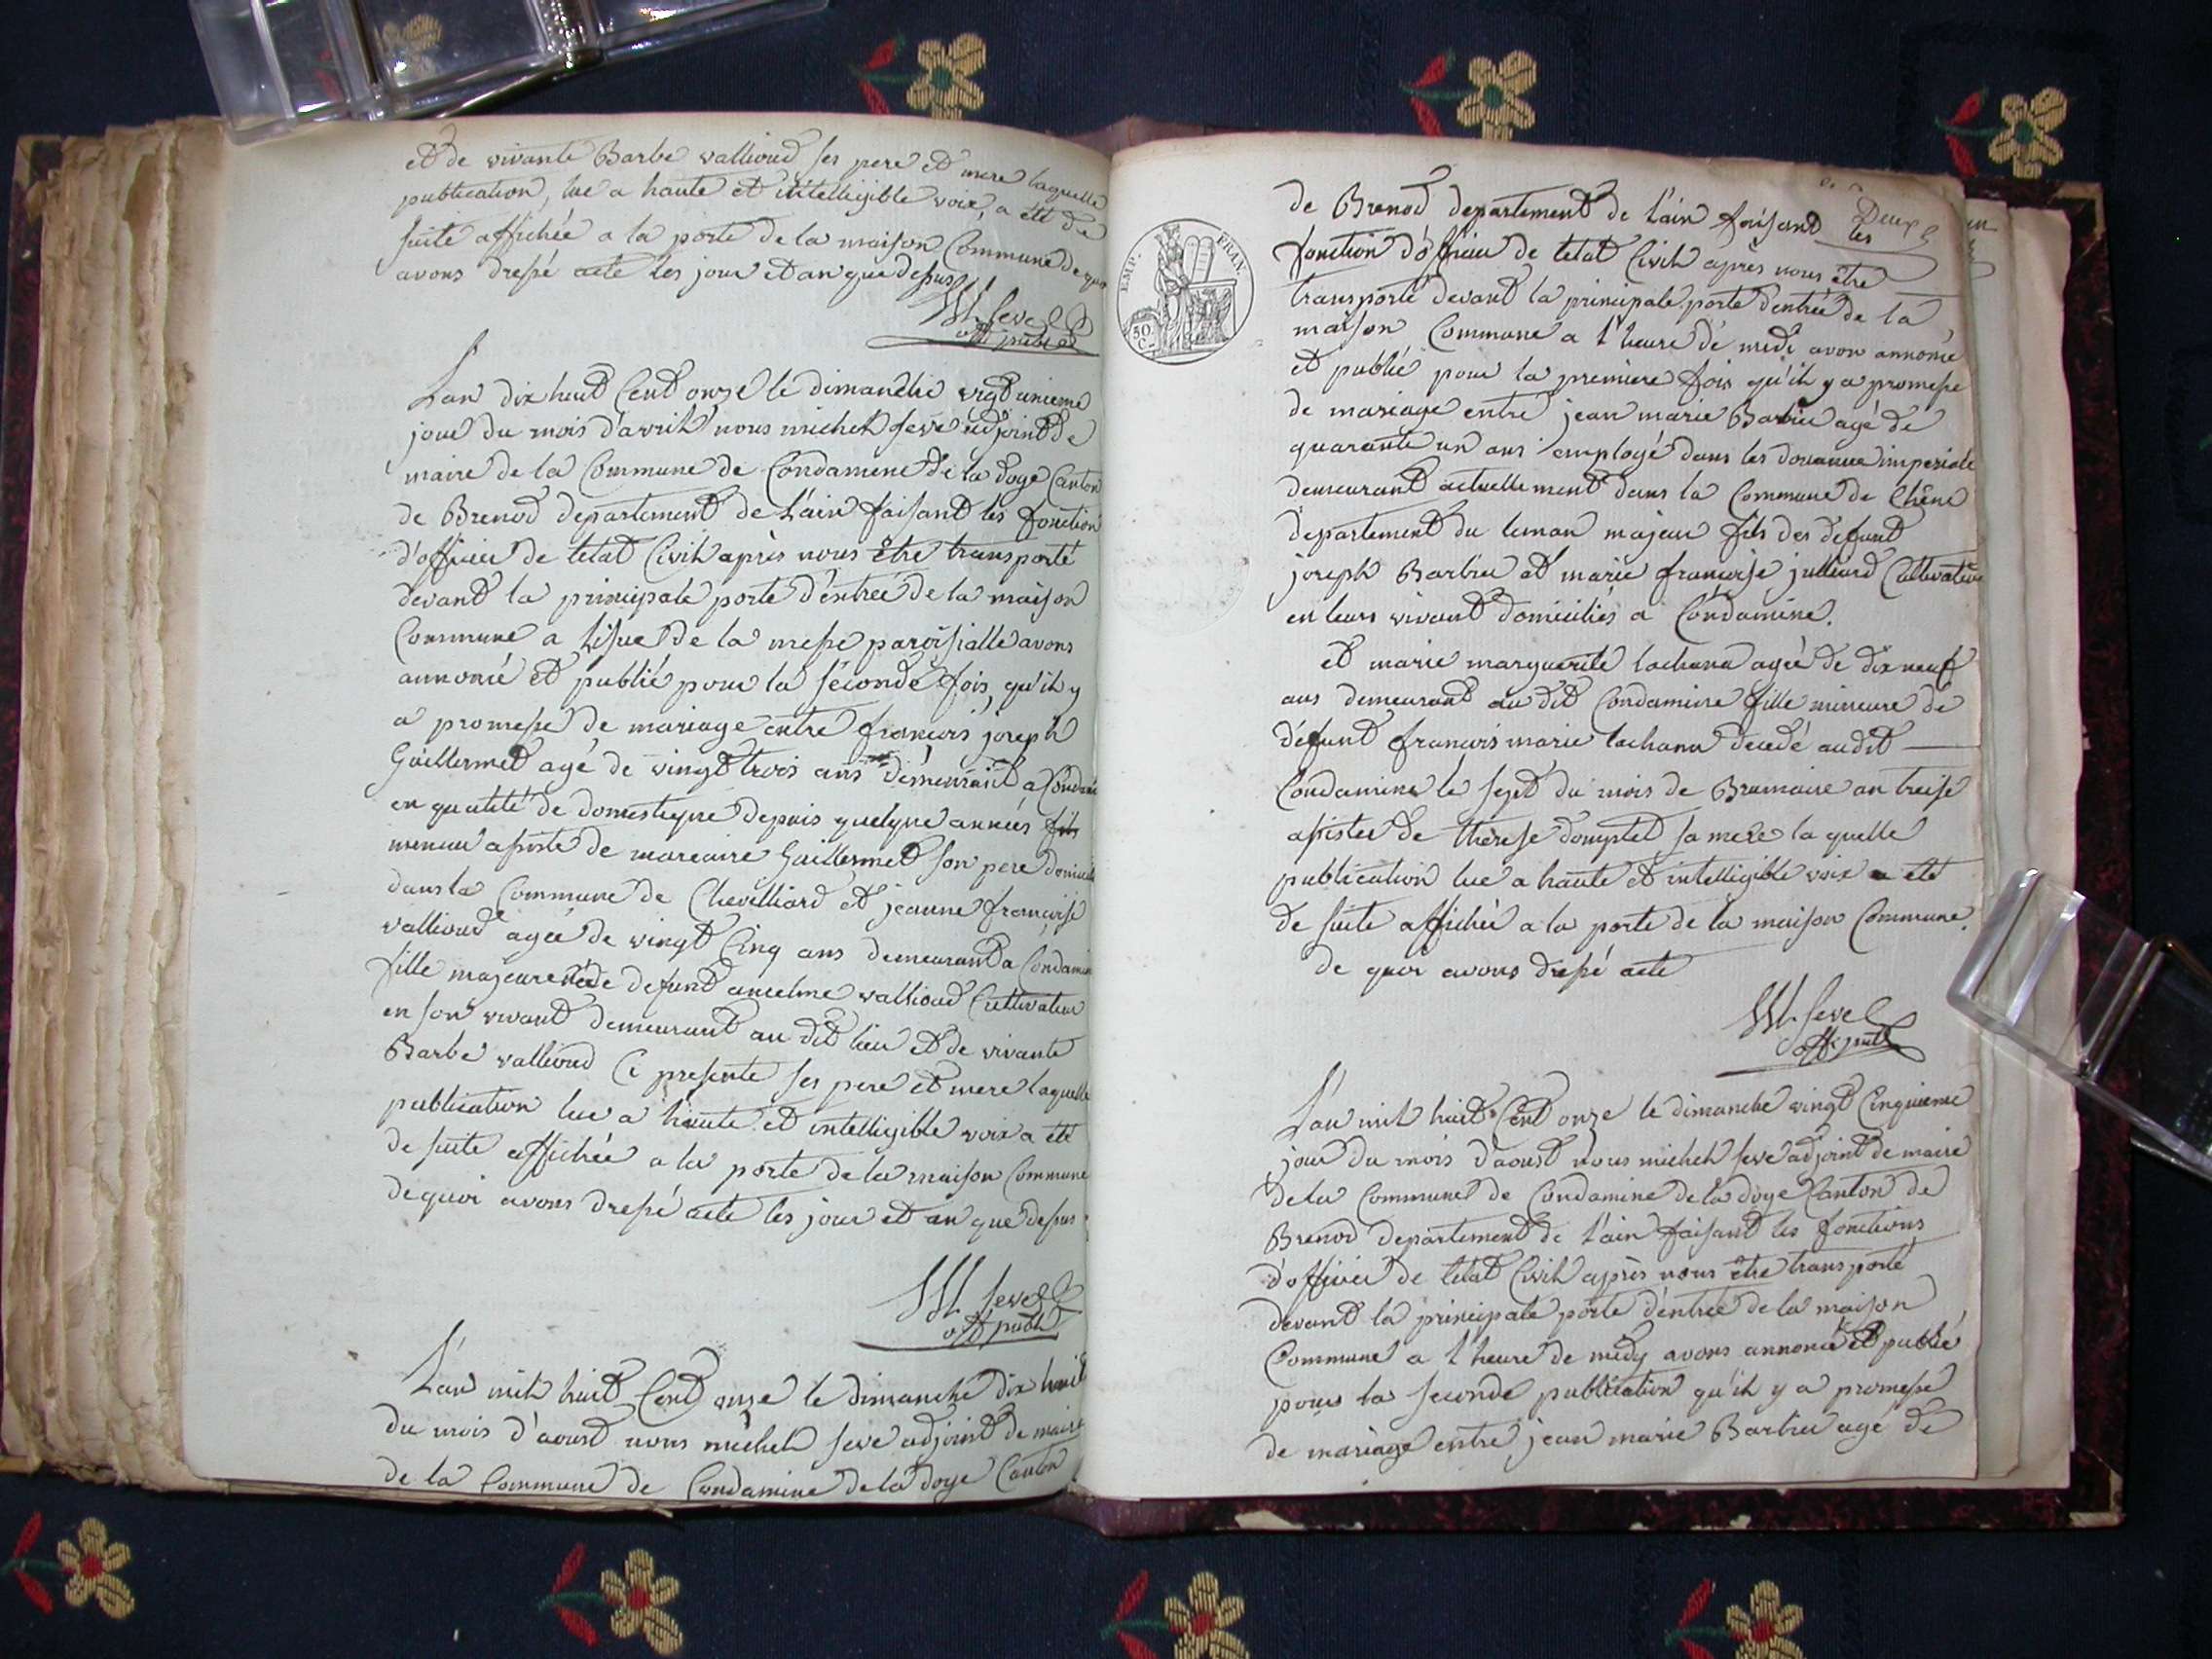 et de vivante Barbe vallioud ses pere et mere laquelle
publication, lue a haute et intelligible voix, a été de
suite affichée a la porte de la maison Commune de quoi
avons dressé acte les jour et an que dessus
M. Seve
off. public
L'an dix huit Cent onze le dimanche vigt unieme
jour du mois d'avril nous michel seve adjoint de
maire de la Commune de Condamine de la doye Canton
de Brenod departement de L'ain faisant les fonction
d'officier de letat Civil après nous être transporté
devant la principale porte d'entrée de la maison
Commune a lissue de la messe paroissialle avons
annoncé et publié pour la seconde fois, qu'il y
a promesse de mariage entre françois joseph
Guillermet agé de vingt trois ans demeurant a Condamine
en qualité de domestique depuis quelque années fils
mineur assisté de Guillermet son pere domicilié
dans la Commune de Chevilliard et jeanne françoise
vallioud agée de vingt Cinq ans demeurant a Condamine
fille majeure de defunt ancelme vallioud Cultivateur
en son vivant demeurant au dit lieu et de vivante
Barbe vallioud Ci presente ses pere et mere laquelle
publication lue a haute et intelligible voix a été
de suite affichée a la porte de la maison Commune
de quoi avons dressé acte les jour et an que dessus
M. Seve
off. public
L'an mil huit Cent onze le dimanche dix huit
du mois d'aoust nous michel seve adjoint de maire
de la Commune de Condamine de la doye Canton
EMP. FRAN.
50. C.
Deux
de Brenod departement de L'ain faisant les
fonction d'officier de letat Civil après nous être
transporté devant la principale porte d'entrée de la
maison Commune a l'heure de midi avon annoncé
et publié pour la premiere fois qu'il y a promesse
de mariage entre jean marie Barbier agé de
quarante un ans employé dans les douanne imperiale
demeurant actuellement dans la Commune de Chêne
departement du leman majeur fils des defunt
joseph Barbier et marie françoise julliard Cultivateur
en leurs vivant domiciliés a Condamine.
et marie marguerite lachana agée de dix neuf
ans demeurant au dit Condamine fille mineure de
défunt francois marie lachana decedé audit
Condamine le sept du mois de Brumaire an treise
assistée de therese sa mere la quelle
publication lue a haute et intelligible voix a été
de suite affichée a la porte de la maison Commune.
de quoi avons dressé acte
M. Seve
off. public
L'an mil huit Cent onze le dimanche vingt Cinquieme
jour du mois d'aoust nous michel seve adjoint de maire
de la Commune de Condamine de la doye Canton de
Brenod departement de L'ain faisant les fonctions
d'officier de letat Civil après nous être transporté
devant la principale porte d'entrée de la maison
Commune a l heure de midy avons annoncé et publié
pour la seconde publication qu'il y a promesse
de mariage entre jean marie Barbier agé de